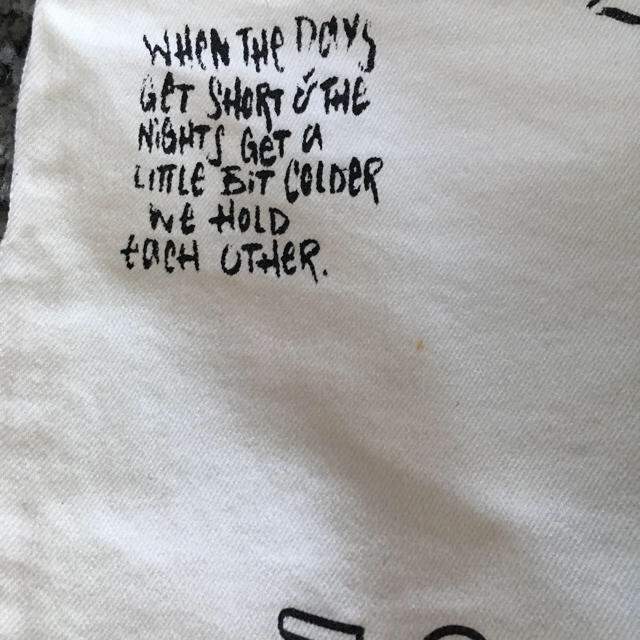 WHEN THE DAYS
GET SHORT & THE
NIGHTS GET A
LITTLE BIT COLDER
WE HOLD
EACH OTHER.